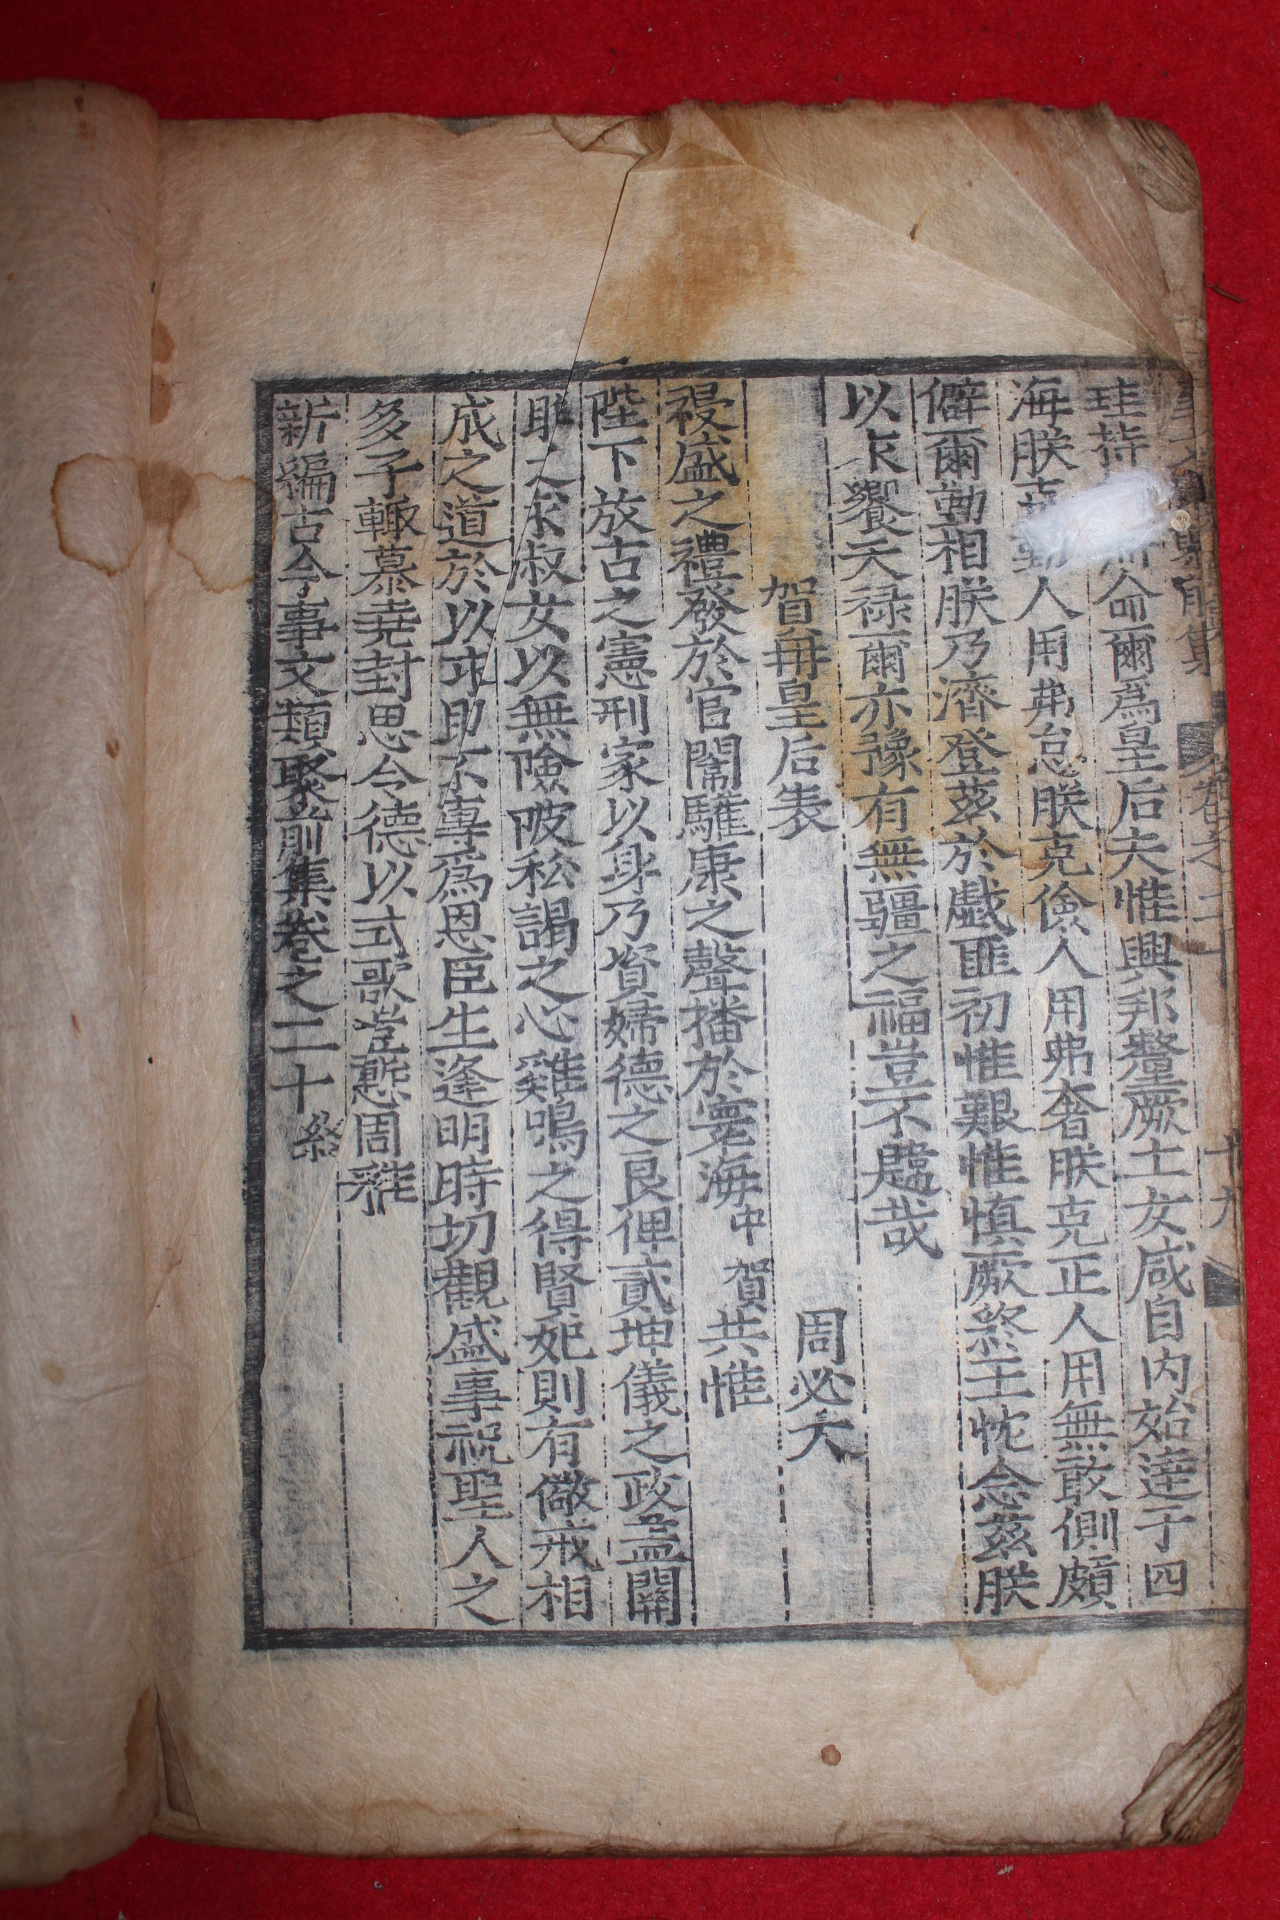 事文類聚前集 卷之二十 十九
珪持 命爾爲皇后夫惟興邦釐厥士女咸自內始達于四
海朕克勤人用弗怠朕克儉人用弗奢朕克正人用無敢側頗
僻爾勤相朕乃濟登玆於戲匪初惟艱惟愼厥終王忱念玆朕
以永饗天祿爾亦豫有無疆之福豈不韙哉
賀冊皇后表 周必大
祲盛之禮發於官闈驩康之聲播於寰海中賀共惟
陛下放古之憲刑家以身乃資婦德之良俾貳坤儀之政盖關
雎之求叔女以無險陂私謁之心雞鳴之得賢妃則有儆戒相
成之道於以求助不專爲恩臣生逢明時切觀盛事祝聖人之
多子輙慕堯封思令德以式歌豈慙周雅
新編古今事文類聚前集卷之二十 終